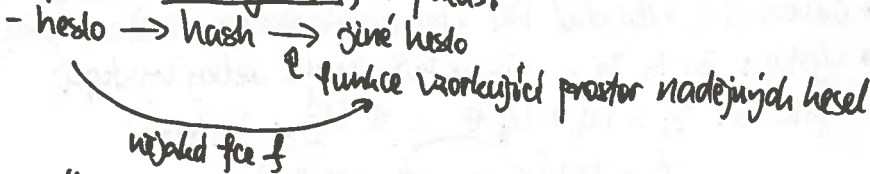 - heslo → hash → jiné heslo
funkce vzorkující prostor nadějných hesel
nějaká fce f